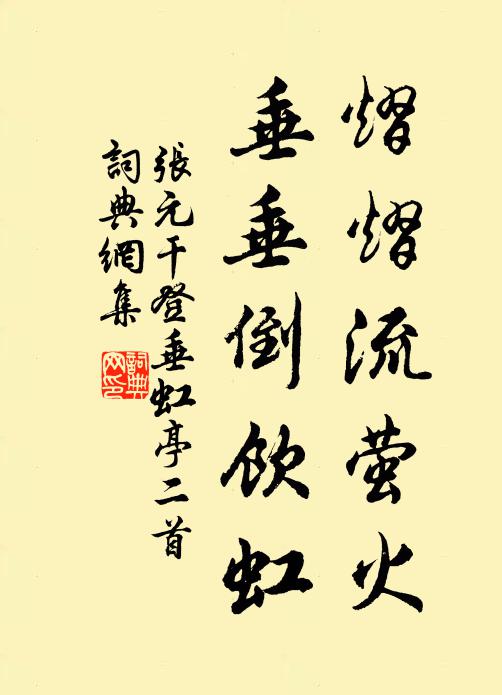 熠熠流萤火
垂垂倒飲虹
張元干登垂虹亭二首
詞典網集
詞典網印